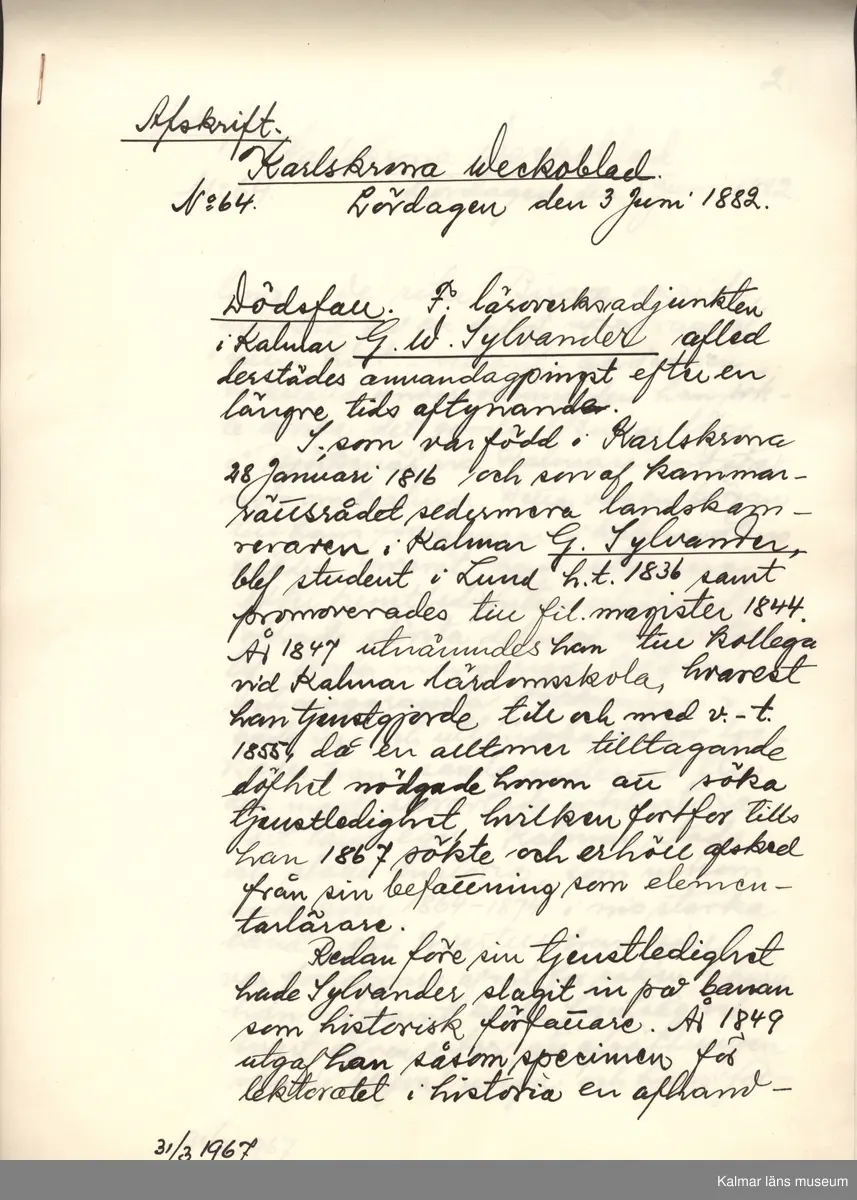 Afskrift.
Karlskrona Weckoblad.
No 64. Lördagen den 3 Juni 1882.
Dödsfall. F. läroverksadjunkten
i Kalmar G. W. Sylvander afled
derstädes annandagpingst efter en
längre tids aftynande.
S. som var född i Karlskrona
28 Januari 1816 och son af kammar-
rättsrådet sedermera landskam-
reraren i Kalmar G. Sylvander,
blef student i Lund h.t. 1836 samt
promoverades till fil. magister 1844.
År 1847 utnämndes han till kollega
vid Kalmar lärdomsskola, hvarest
han tjenstgjorde till och med v.-t.
1855, då en alltmer tilltagande
döfhet nödgade honom att söka
tjenstledighet, hvilken fortfor tills
han 1867 sökte och erhöll afsked
från sin befattning som elemen-
tarlärare.
Redan före sin tjenstledighet
hade Sylvander slagit in på banan
som historisk författare. År 1849
utgaf han såsom specimen för
lektoratet i historia en afhand-
31/3 1967
Kalmar läns museum